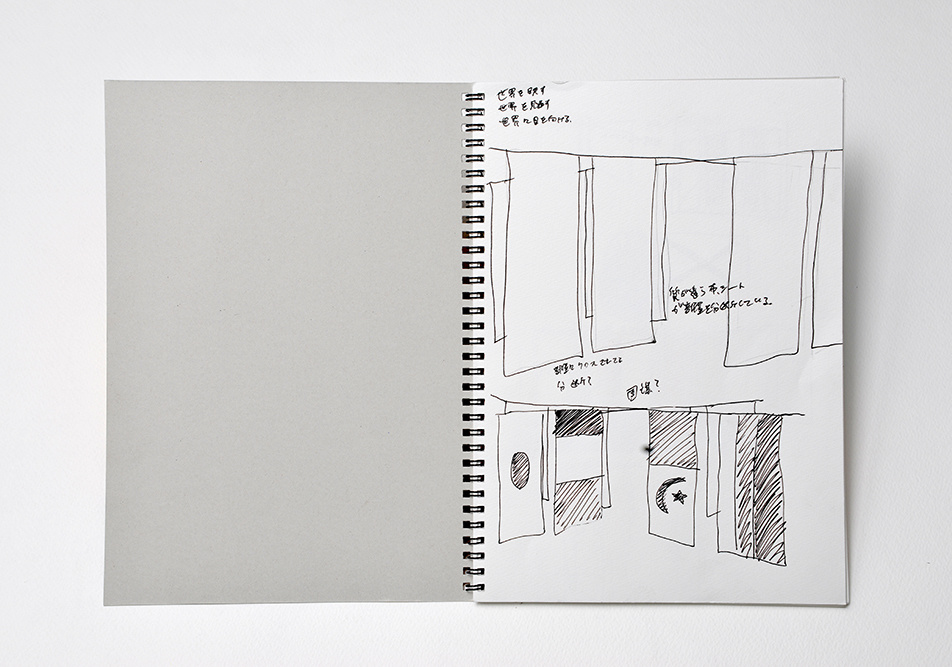 世界を映す
世界を見渡す
世界に目を向ける。
質の違う布、シート
が部屋を分断している。
部屋にクロスさせて
分断?
国旗?